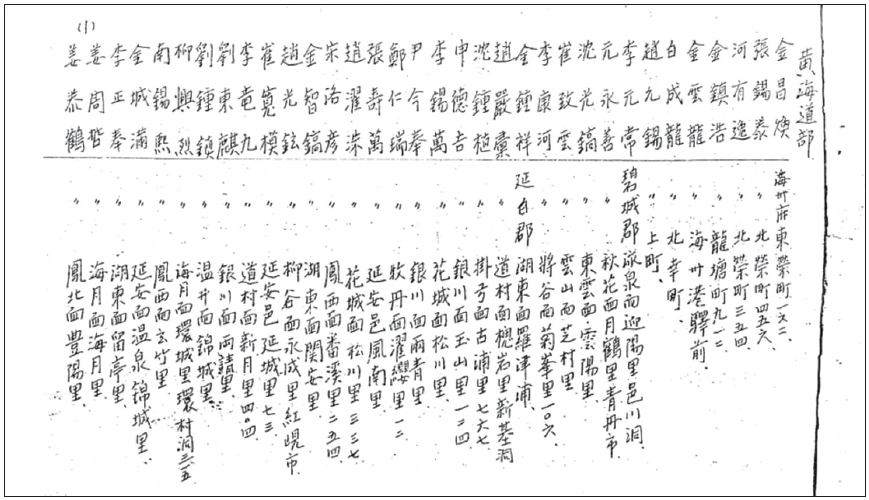 (1)
黃海道部
金昌煥 海州府東榮町一六二
張錫泰 〃 北榮町四五六
河有逸 〃 北榮町三五四
金鎮浩 〃 龍塘町九一二
金雲龍 〃 海州港驛前
白成龍 〃 北幸町
趙元錫 〃 上町
李元常 碧城郡泉面迎陽里邑川洞
元永善 〃 秋花面月鶴里青丹市
沈光鎬 〃 東雲面雲陽里
崔致雲 〃 雲山面芝村里
李康河 〃 將谷面菊峯里一〇六
金鍾祥 延白郡湖東面羅津浦
趙嚴彙 〃 道村面樬岩里新基洞
沈鍾植 〃 掛弓面古浦里七六七
申德吉 〃 銀川面玉山里一二四
李錫萬 〃 花城面松川里
尹今奉 〃 銀川面雨青里
鄭仁瑞 〃 牧丹面濯纓里一二
張壽萬 〃 延安邑鳳南里
趙濯洙 〃 花城面松川里三三七
宋洛彦 〃 鳳西面番溪里二五四
金智鎬 〃 湖東面開安里
趙光鉉 〃 柳谷面永成里紅峴市
崔寬模 〃 延安邑延城里七三
李竜九 〃 道村面新月里四〇四
劉東麒 〃 銀川面両靖里
劉鍾鎖 〃 温井面錦城里
柳興烈 〃 海月面環城里環村洞三五
南錫熙 〃 鳳西面玄竹里
金城滿 〃 延安面温泉錦城里
李正奉 〃 湖東面留亭里
姜周 〃 海月面海月里
姜泰鶴 〃 鳳北面豊陽里